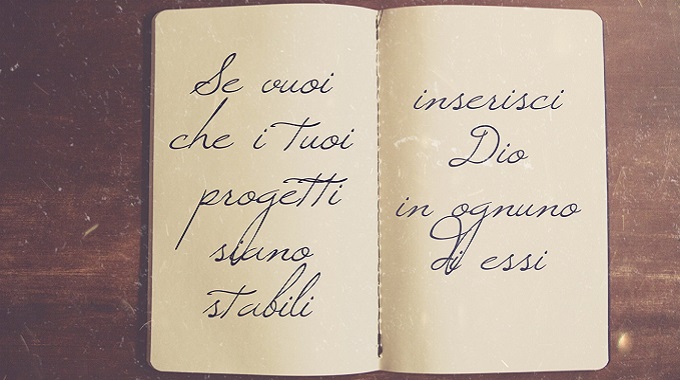 Se vuoi
che i tuoi
progetti
siano
stabili
inserisci
Dio
in ognuno
di essi